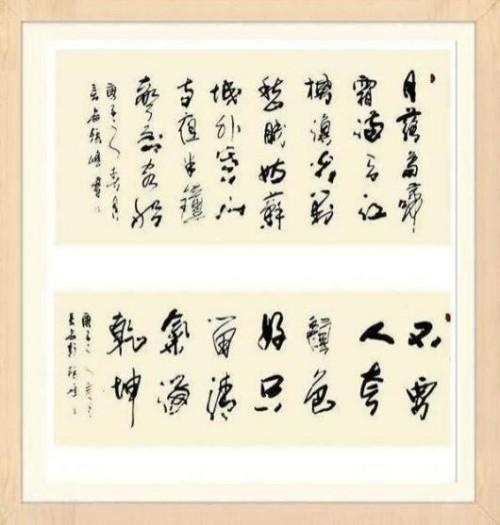 月落烏啼
霜滿天江
楓漁火對
愁眠姑蘇
城外寒山
寺夜半鐘
聲到客船
不要
人夸
顏色
好只
留清
氣滿
乾坤